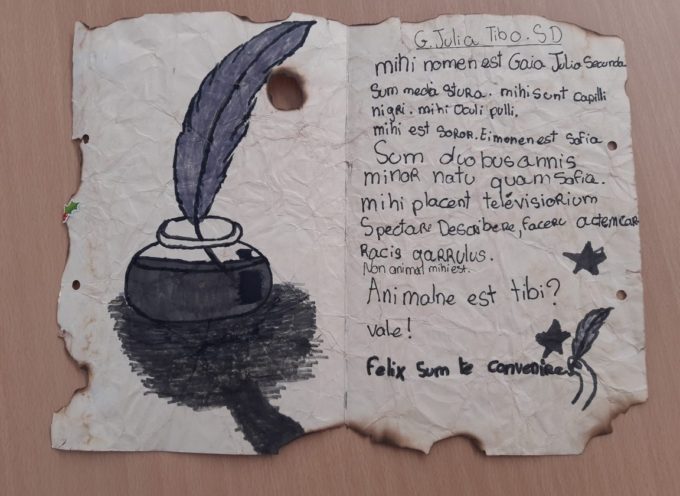 G. Julia Tibo. SD
mihi nomen est Gaia Julia Secunda
Sum media stura. mihi sunt capilli
nigri. mihi oculi pulli.
mihi est soror. Ei monen est Sofia
Sum duobus annis
minor natu quam Sofia.
mihi placent televisiorium
Spectare Describere, facere
Racis garrulus.
Non animal mihi est.
Animalne est tibi?
vale!
Felix Sum te convenire